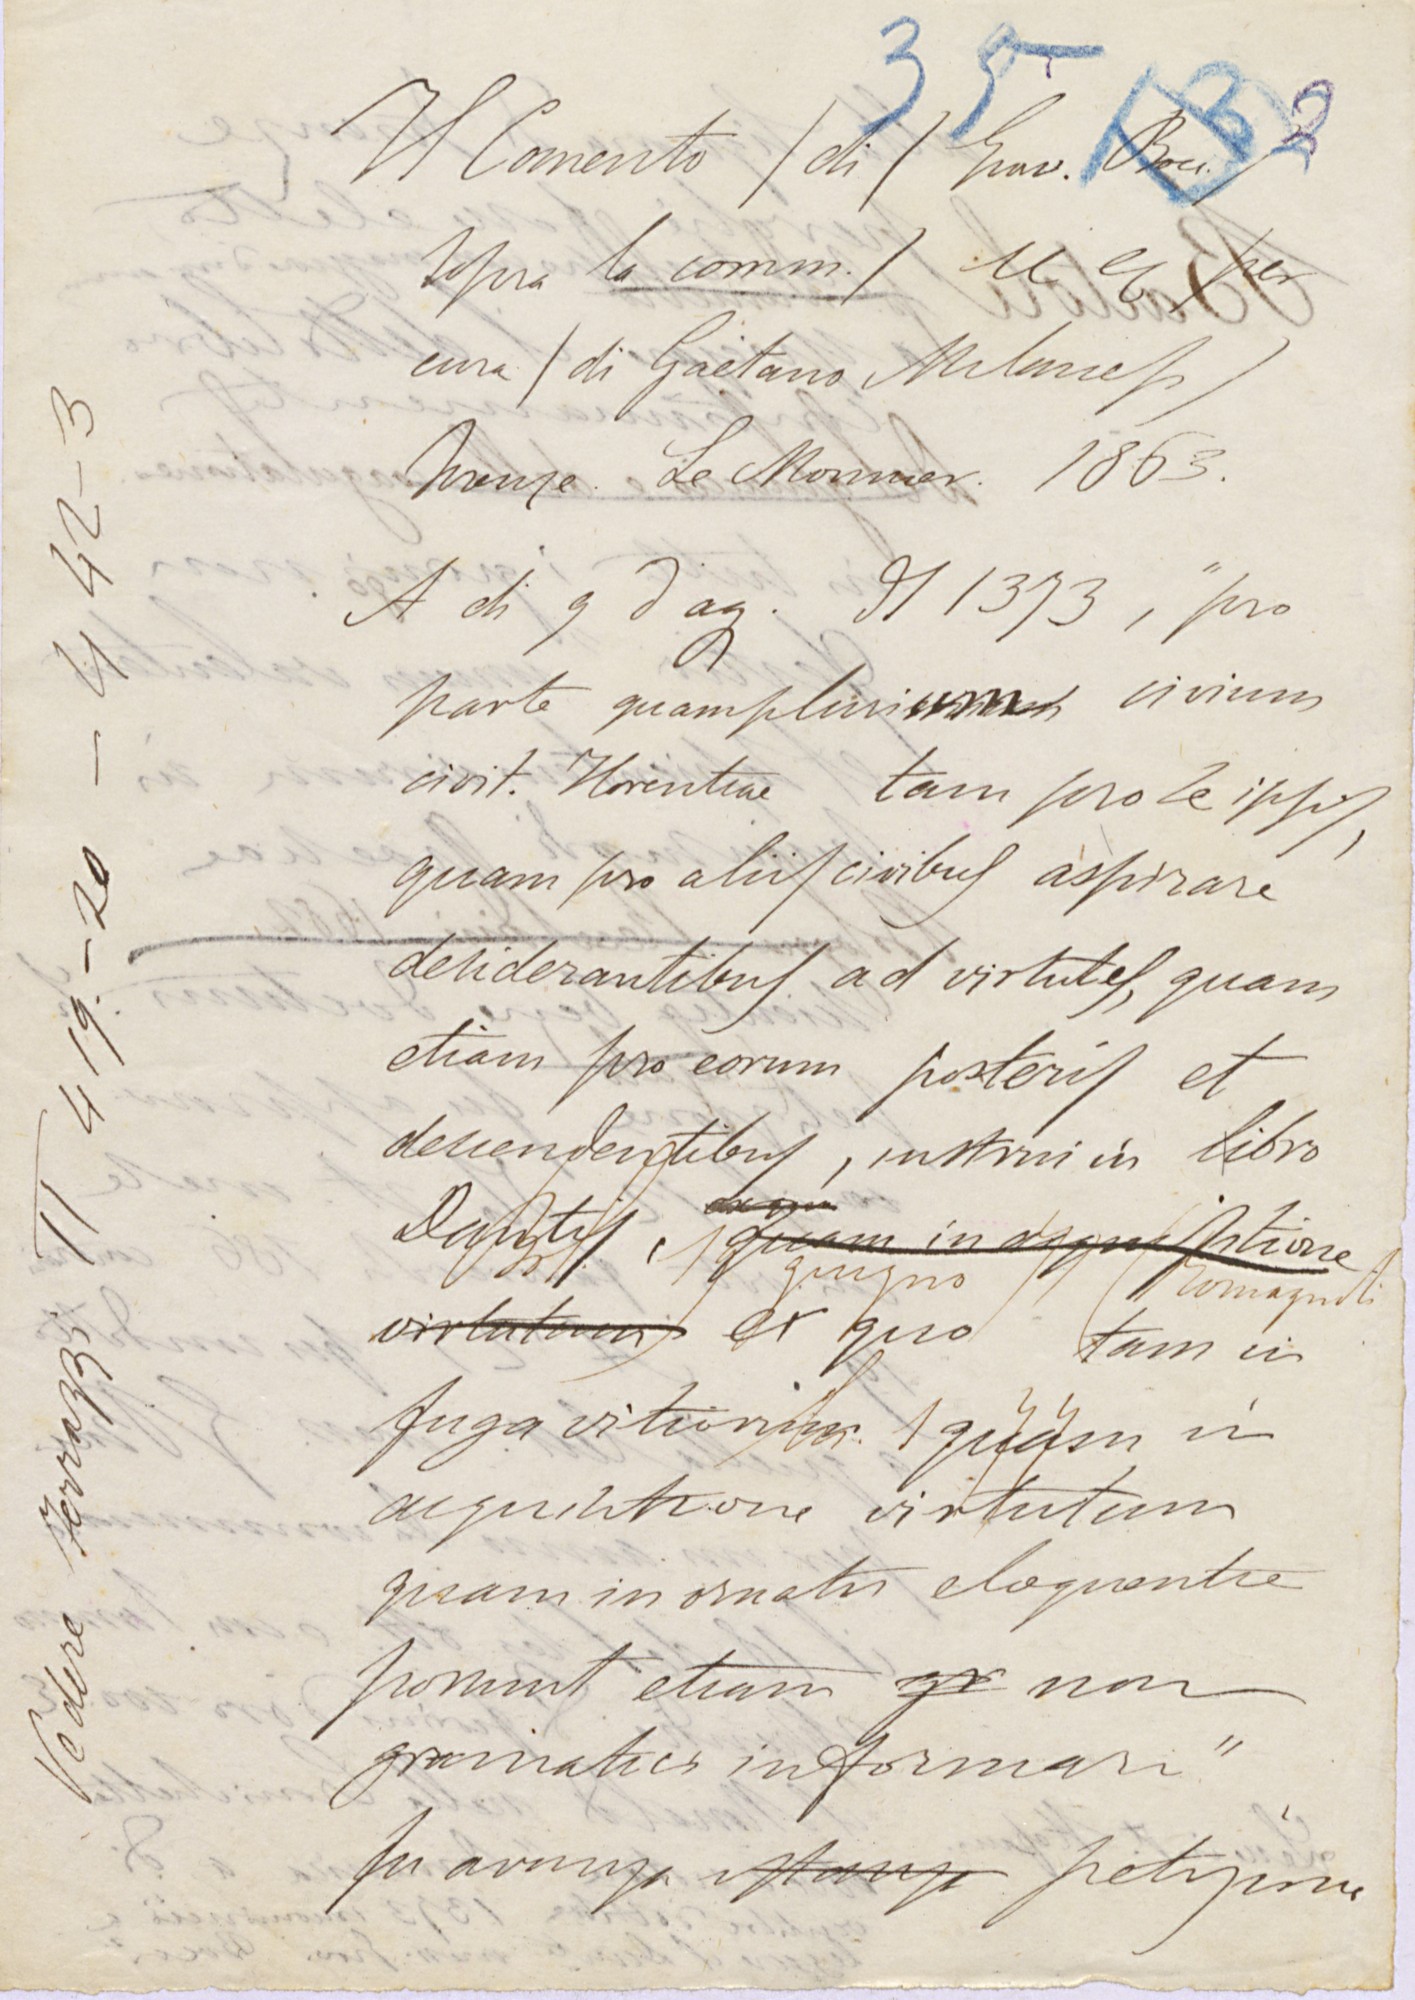 35 13 2
Il Comento / di / Giov. Bocc. /
sopra la comm. / per
cura / di Gaetano Milanesi /
Firenze. Le Monnier. 1863.
A di 9 d'ag. del 1373, "pro
parte quamplurium civium
civit. Florentiae tam pro se ipsis,
quam pro aliis civibus aspirare
desiderantibus ad virtutes, quam
etiam pro eorum posteris et
descendentibus, instrui in libro
Dantis, quam in acquisitione
giugno Romagnoli
virtutum ex quo tam in
fuga vitiorum quam in
acquisitione virtutum
quam in ornatu eloquentie
possunt etiam gr non
grammatici informari"
fu avanza petizione
Vedere Ferrazzi II 419-20 - 442-3